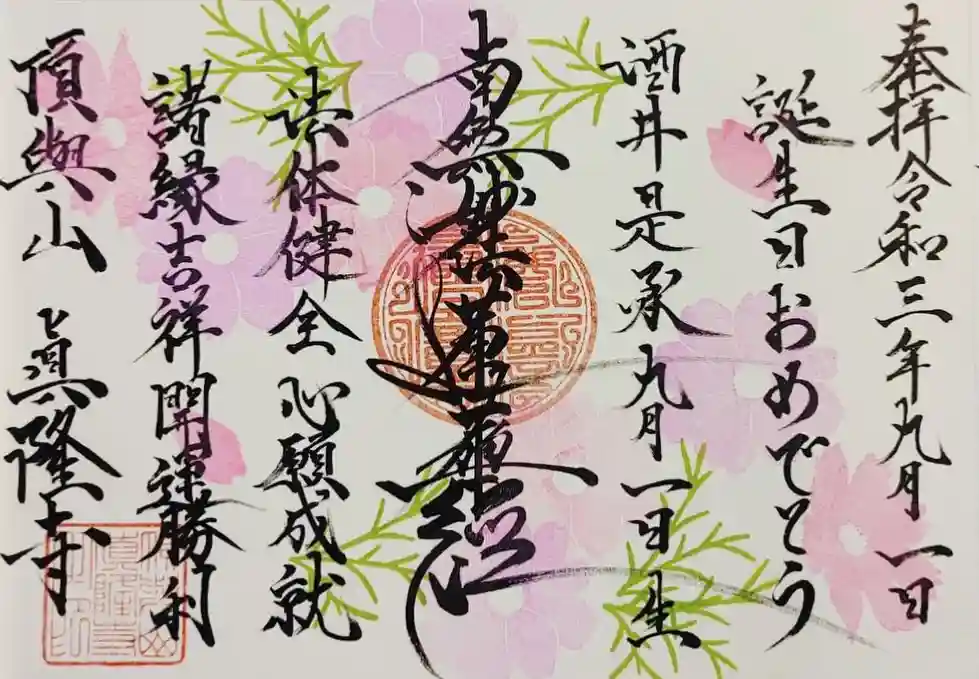 奉拝令和三年九月一日
誕生日おめでとう
酒井是承九月一日生
南無妙法蓮華経
法体健全 心願成就
諸縁吉祥開運勝利
頂輿山 真隆寺